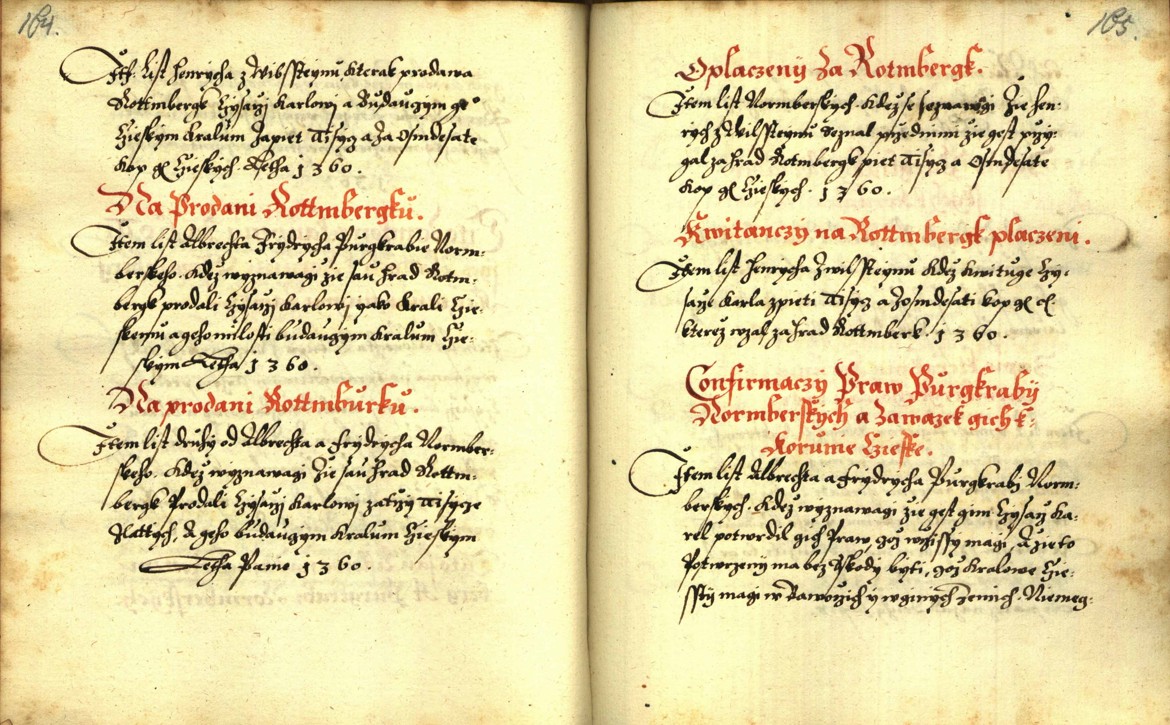 164.
Itē List Henrycha z Wilssteynu kterak prodawa
Rottmbergk Czysarzi Karlowj a Buducym ge°
Czieskym Kraluom Za piet Tisycz a Za Osmdesate
kop gr Czieskych. Letha 1360.
Na Prodani Rottmbergku.
Item list Albrechta Frydrycha Purgkrabie Norm-
berskeho. Kdez wyznawagi zie sau hrad Rotm-
bergk prodali Czysarzj Karlowj yako Krali Czie-
skemu a geho milosti buducym Kraluom Cze-
skym Letha 1360.
Na prodani Rottmburku.
Item list druhy od Albrechta a Frydrycha Normber-
skeho. Kdez wyznawagi zie sau hrad Rottm-
bergk Prodali Czysarzj Karlowj za trzy Tisycze
Zlattych, A geho buducym Kraluom Czieskym
Letha Panie 1360.
165.
Oplaczeny Za Rotmbergk.
Item list Normberskych. Kdez se seznawagi Zie Hen-
rych z Wilssteynu Seznal przednimi zie gest przy-
gal za hrad Rotmbergk piet Tisycz a Osmdesate
kop gr Czieskych. 1360.
Kwitanczy na Rottmbergk placzeni.
Item list Henrycha Zwilssteynu Kdez Kwituge Czy-
sarze Karla z pieti Tisycz a Zosmdesati kop gr c.
kterez wzal za hrad Rottmberk. 1360.
Confirmaczy Praw Purgkraby
Normberskych a Zawazek gich k-
Korunie Czieske.
Item list Albrechta a Frydrycha Purgkraby Norm-
berskych. Kdez wyznawagi zie gest gim Czysarz Ka-
rel potwrdil gich Praw gez wRzissy magi, A zie to
Potwrzeny ma bez Sskody byti, gez Kralowe Czie-
sstij magi w Baworzich y w ginych Zemich. Niemecz-